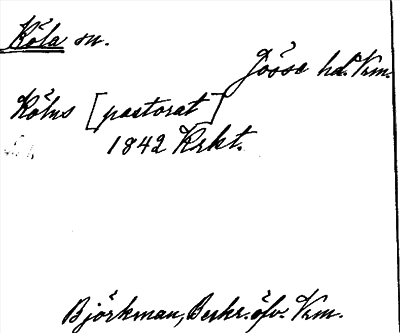 Köla sn.
Jösse hd. Vrm.
Kölns [pastorat]
1842 Krkt.
Björkman, Beskr. öfv. Vrm.